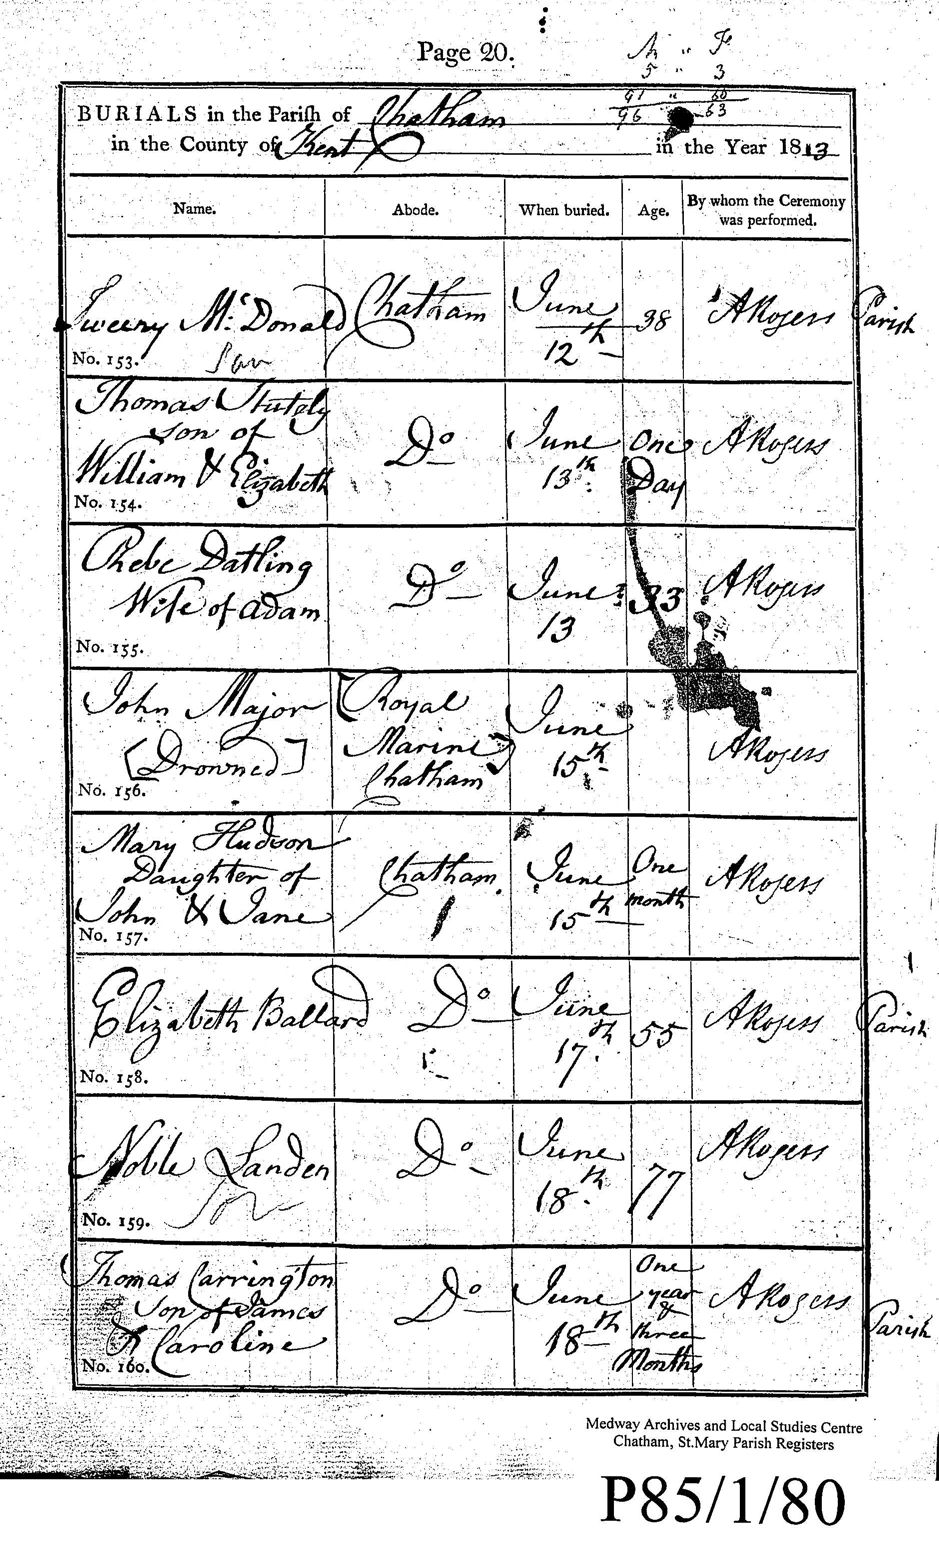 Page 20.
M " F
5 " 3
91 " 60
96 63
BURIALS in the Parish of Chatham
in the County of Kent in the Year 1813
Name. Abode. When buried. Age. By whom the Ceremony was performed.
Sweeny McDonald Chatham June 12th 38 A Rogers Parish
No. 153.
Thomas Stutely
son of
William & Elizabeth Do June 13th One Day A Rogers
No. 154.
Phebe Datling
Wife of Adam Do June 13 33 A Rogers
No. 155.
John Major
[Drowned] Royal Marine Chatham June 15th A Rogers
No. 156.
Mary Hudson
Daughter of
John & Jane Chatham June 15th One month A Rogers
No. 157.
Elizabeth Ballard Do June 17th 55 A Rogers Parish
No. 158.
Noble Landen Do June 18th 77 A Rogers
No. 159.
Thomas Carrington
Son of James
& Caroline Do June 18th One year & three Months A Rogers Parish
No. 160.
Medway Archives and Local Studies Centre
Chatham, St.Mary Parish Registers
P85/1/80